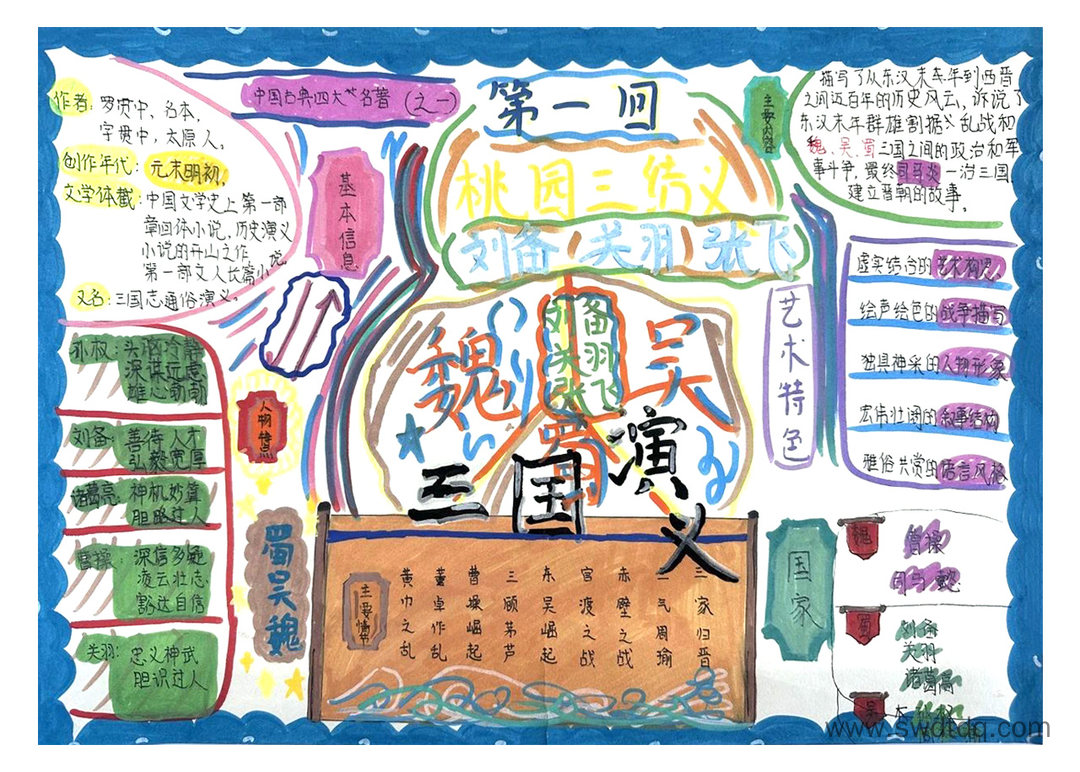 作者：罗贯中，名本，
字贯中，太原人。
创作年代：元末明初，
文学体裁：中国文学史上第一部
章回体小说，历史演义
小说的开山之作
第一部文人长篇小说
又名：三国志通俗演义。
中国古典四大名著（之一）
基本信息
第一回
桃园三结义
刘备 关羽 张飞
主要内容
描写了从东汉末年到西晋
之间近百年的历史风云，诉说了
东汉末年群雄割据混战和
魏、吴、蜀三国之间的政治和军
事斗争，最终司马炎一治三国，
建立晋朝的故事。
孙权：头脑冷静
深谋远虑
雄心勃勃
刘备：善待人才
弘毅宽厚
诸葛亮：神机妙算
胆略过人
曹操：深信多疑
凌云壮志
豁达自信
关羽：忠义神武
胆识过人
人物特点
蜀吴魏
魏
刘备
关羽
张飞
吴
蜀
三国演义
主要情节
黄巾之乱
董卓作乱
曹操崛起
三顾茅芦
东吴崛起
官渡之战
赤壁之战
三气周瑜
三家归晋
艺术特色
虚实结合的艺术构思
绘声绘色的战争描写
独具神采的人物形象
宏伟壮阔的叙事结构
雅俗共赏的语言风格
国家
魏
曹操
司马懿
蜀
刘备
关羽
诸葛亮
吴
www.swdtdq.com